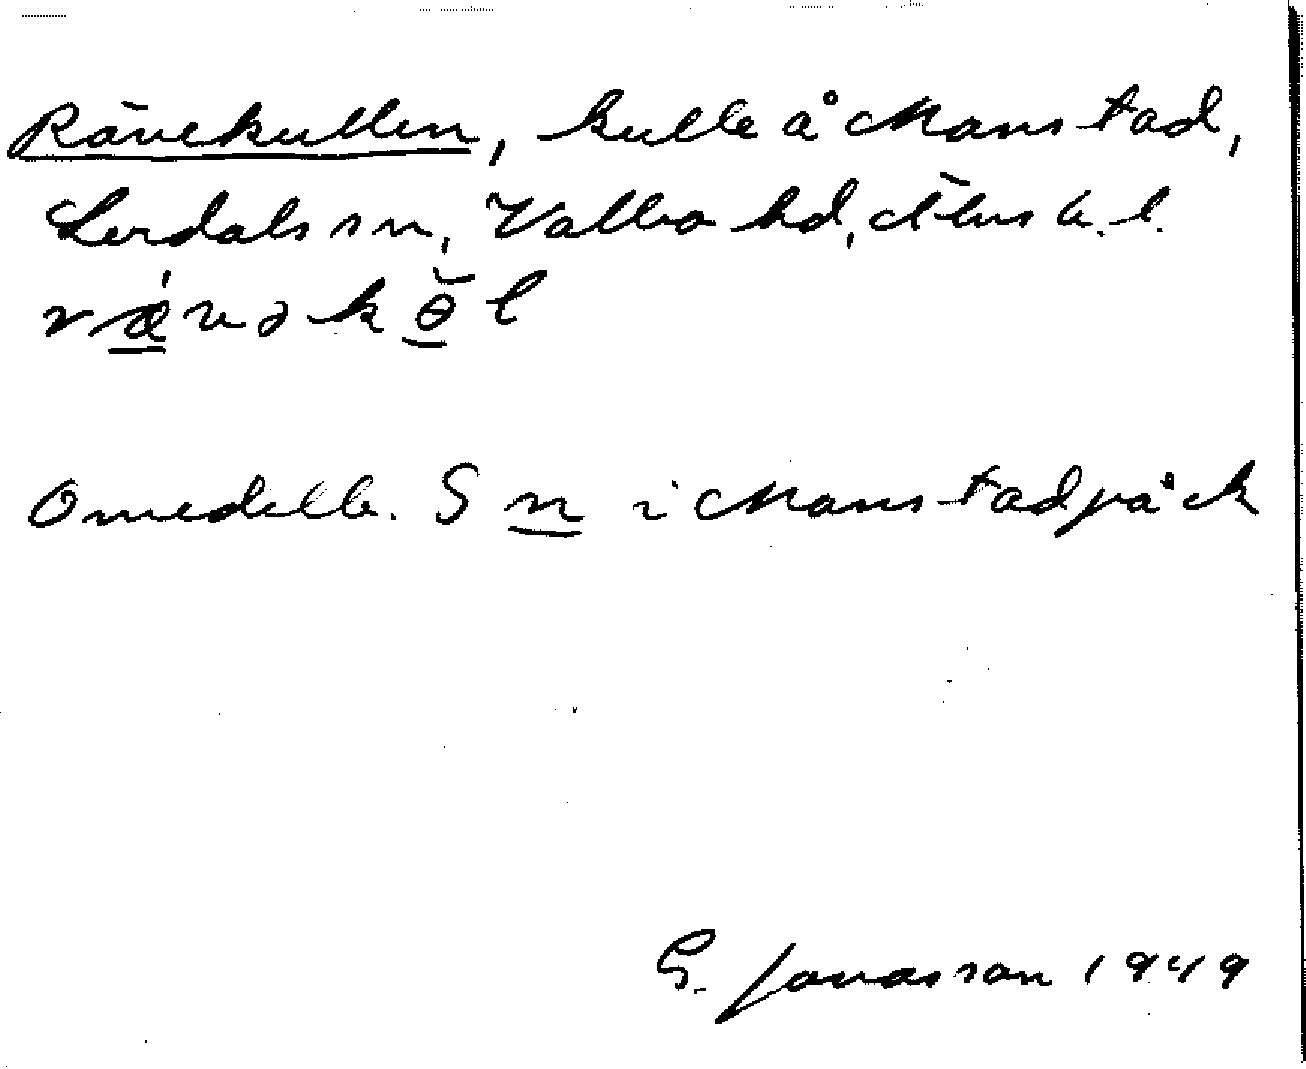 Rävekullen, kulle å Manstad,
Lerdals sn, Valbo hd, Älvsb. l.
rǽvəkɵ̆l
Omedelb. S n i Manstad på ek
G. Jonasson 1949